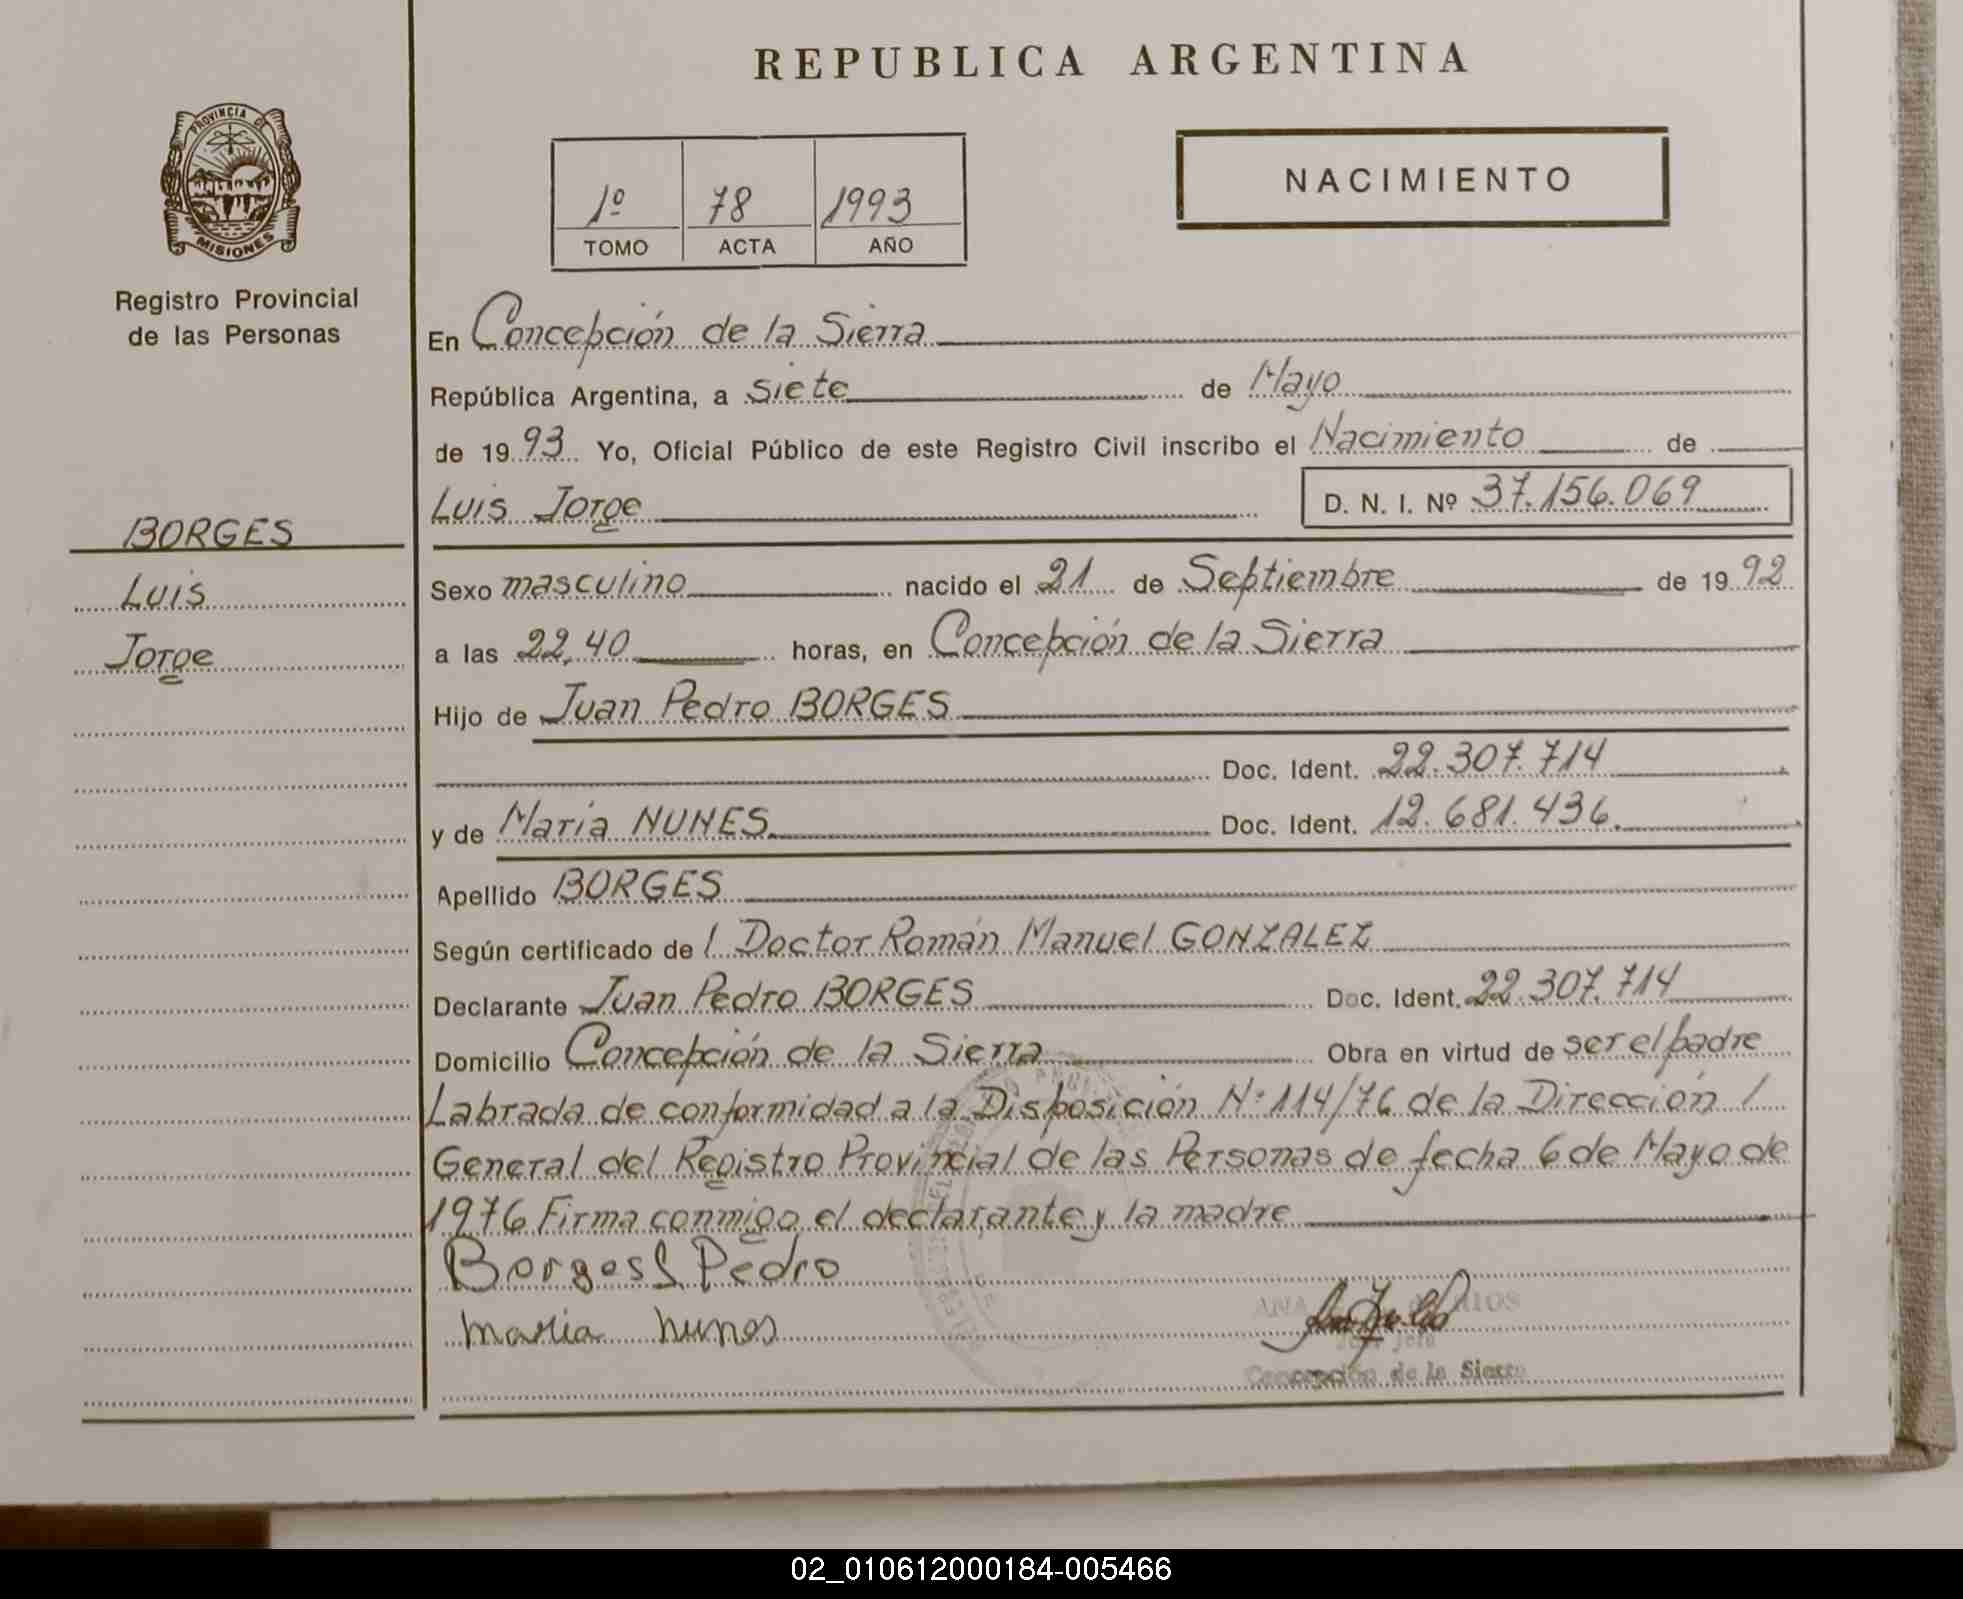 REPUBLICA ARGENTINA
PROVINCIA DE
MISIONES
Registro Provincial
de las Personas
1º 78 1993
TOMO ACTA AÑO
NACIMIENTO
En Concepción de la Sierra
República Argentina, a siete de Mayo
de 1993 Yo, Oficial Público de este Registro Civil inscribo el Nacimiento de
Luis Jorge D. N. I. Nº 37.156.069
BORGES
Luis
Jorge
Sexo masculino nacido el 21 de Septiembre de 1992
a las 22,40 horas, en Concepción de la Sierra
Hijo de Juan Pedro BORGES
Doc. Ident. 22.307.714
y de Maria NUNES Doc. Ident. 12.681.436.
Apellido BORGES
Según certificado de l Doctor Román Manuel GONZALEZ
Declarante Juan Pedro BORGES Doc. Ident. 22.307.714
Domicilio Concepción de la Sierra Obra en virtud de ser el padre
Labrada de conformidad a la Disposición Nº 114/76 de la Dirección /
General del Registro Provincial de las Personas de fecha 6 de Mayo de
1976 Firma conmigo el declarante y la madre
Borges Pedro
maria nunes
ANA RIOS
Jefa
Concepción de la Sierra
02_010612000184-005466